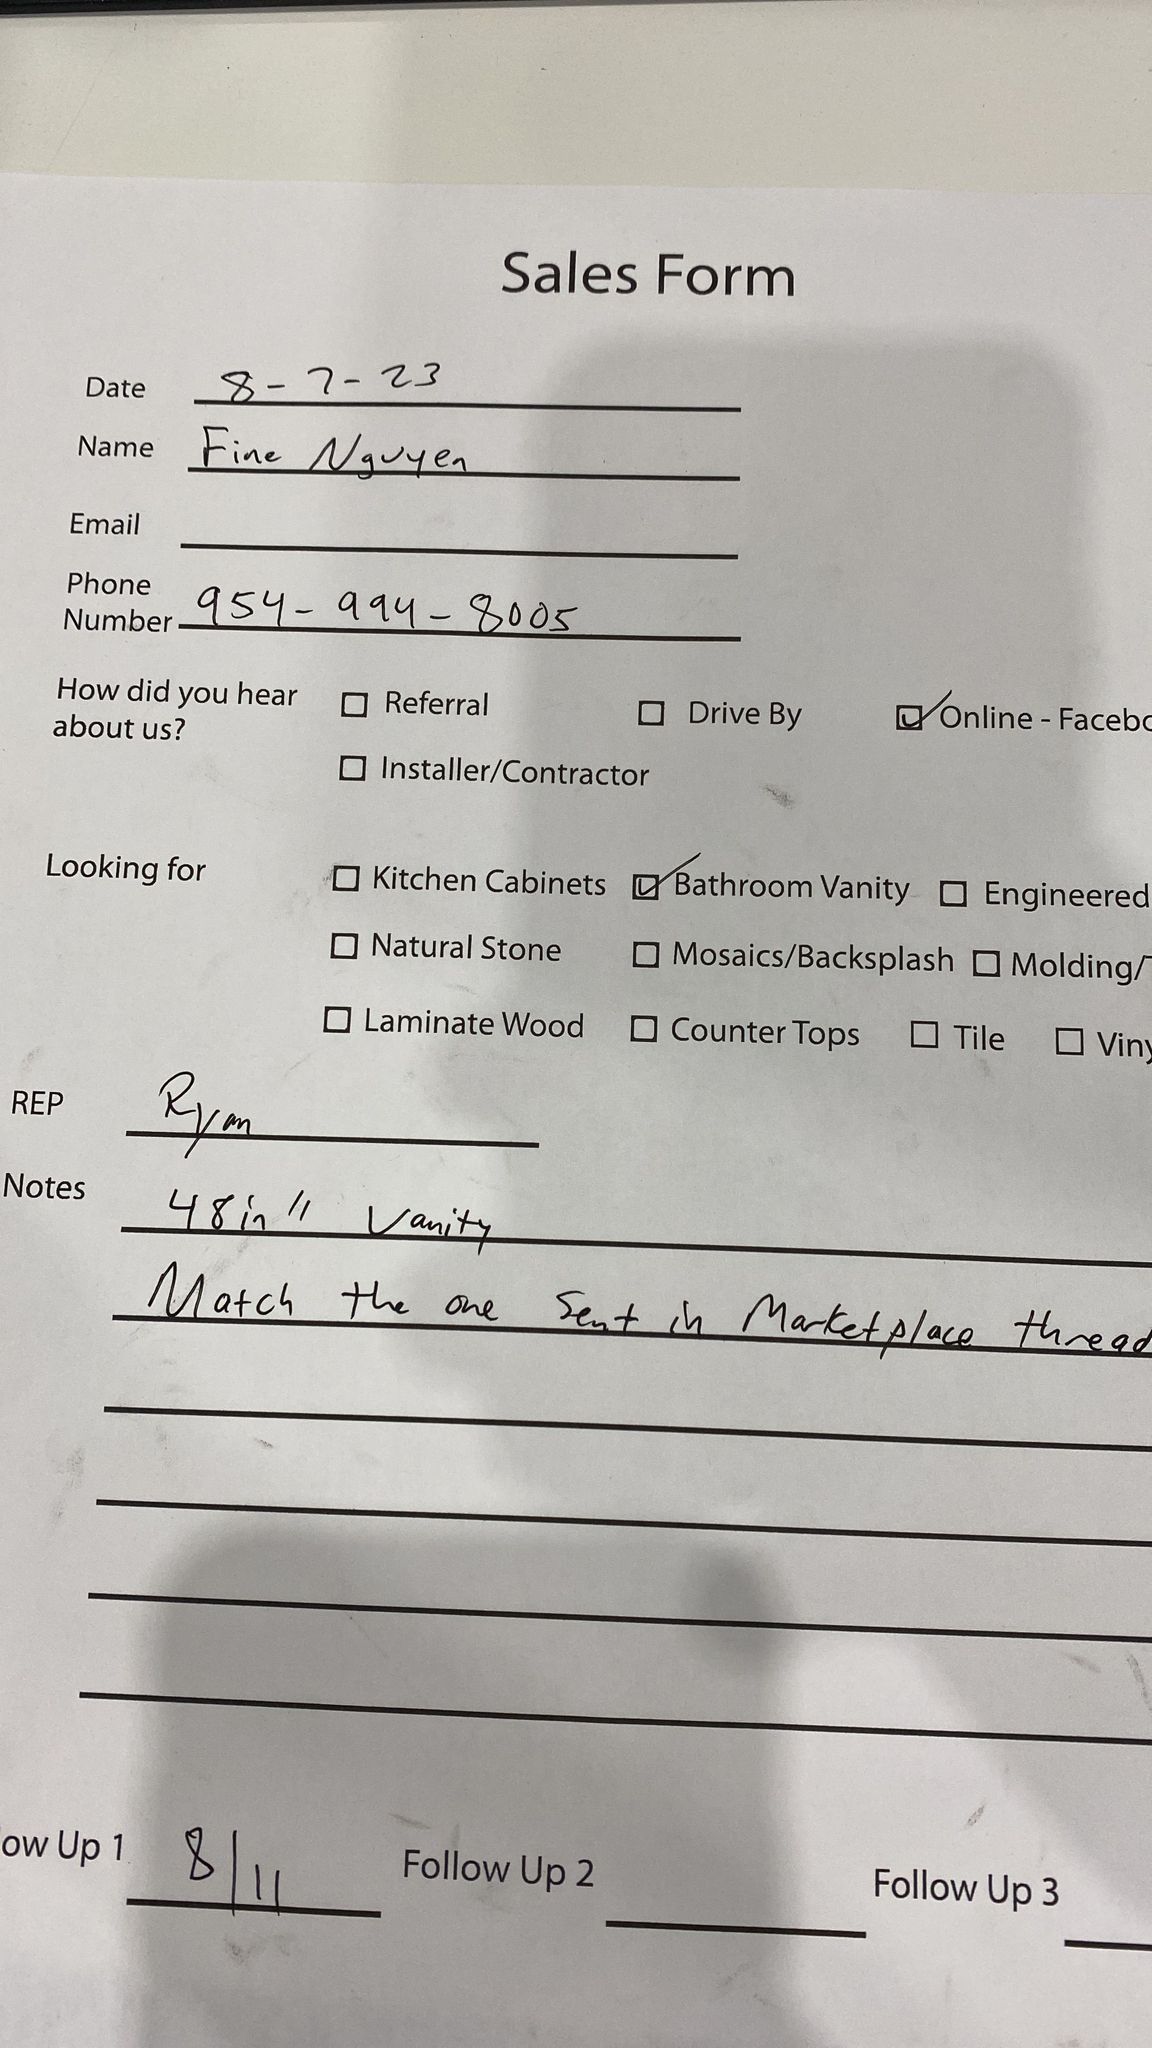 Sales Form
Date 8-7-23
Name Fine Nguyen
Email
Phone
Number 954-994-8005
How did you hear
about us?
Referral Drive By Online - Facebo
Installer/Contractor
Looking for
Kitchen Cabinets Bathroom Vanity Engineered
Natural Stone Mosaics/Backsplash Molding/
Laminate Wood Counter Tops Tile Viny
REP Ryan
Notes 48in" Vanity
Match the one sent in Marketplace thread
ow Up 1 8/11 Follow Up 2 Follow Up 3